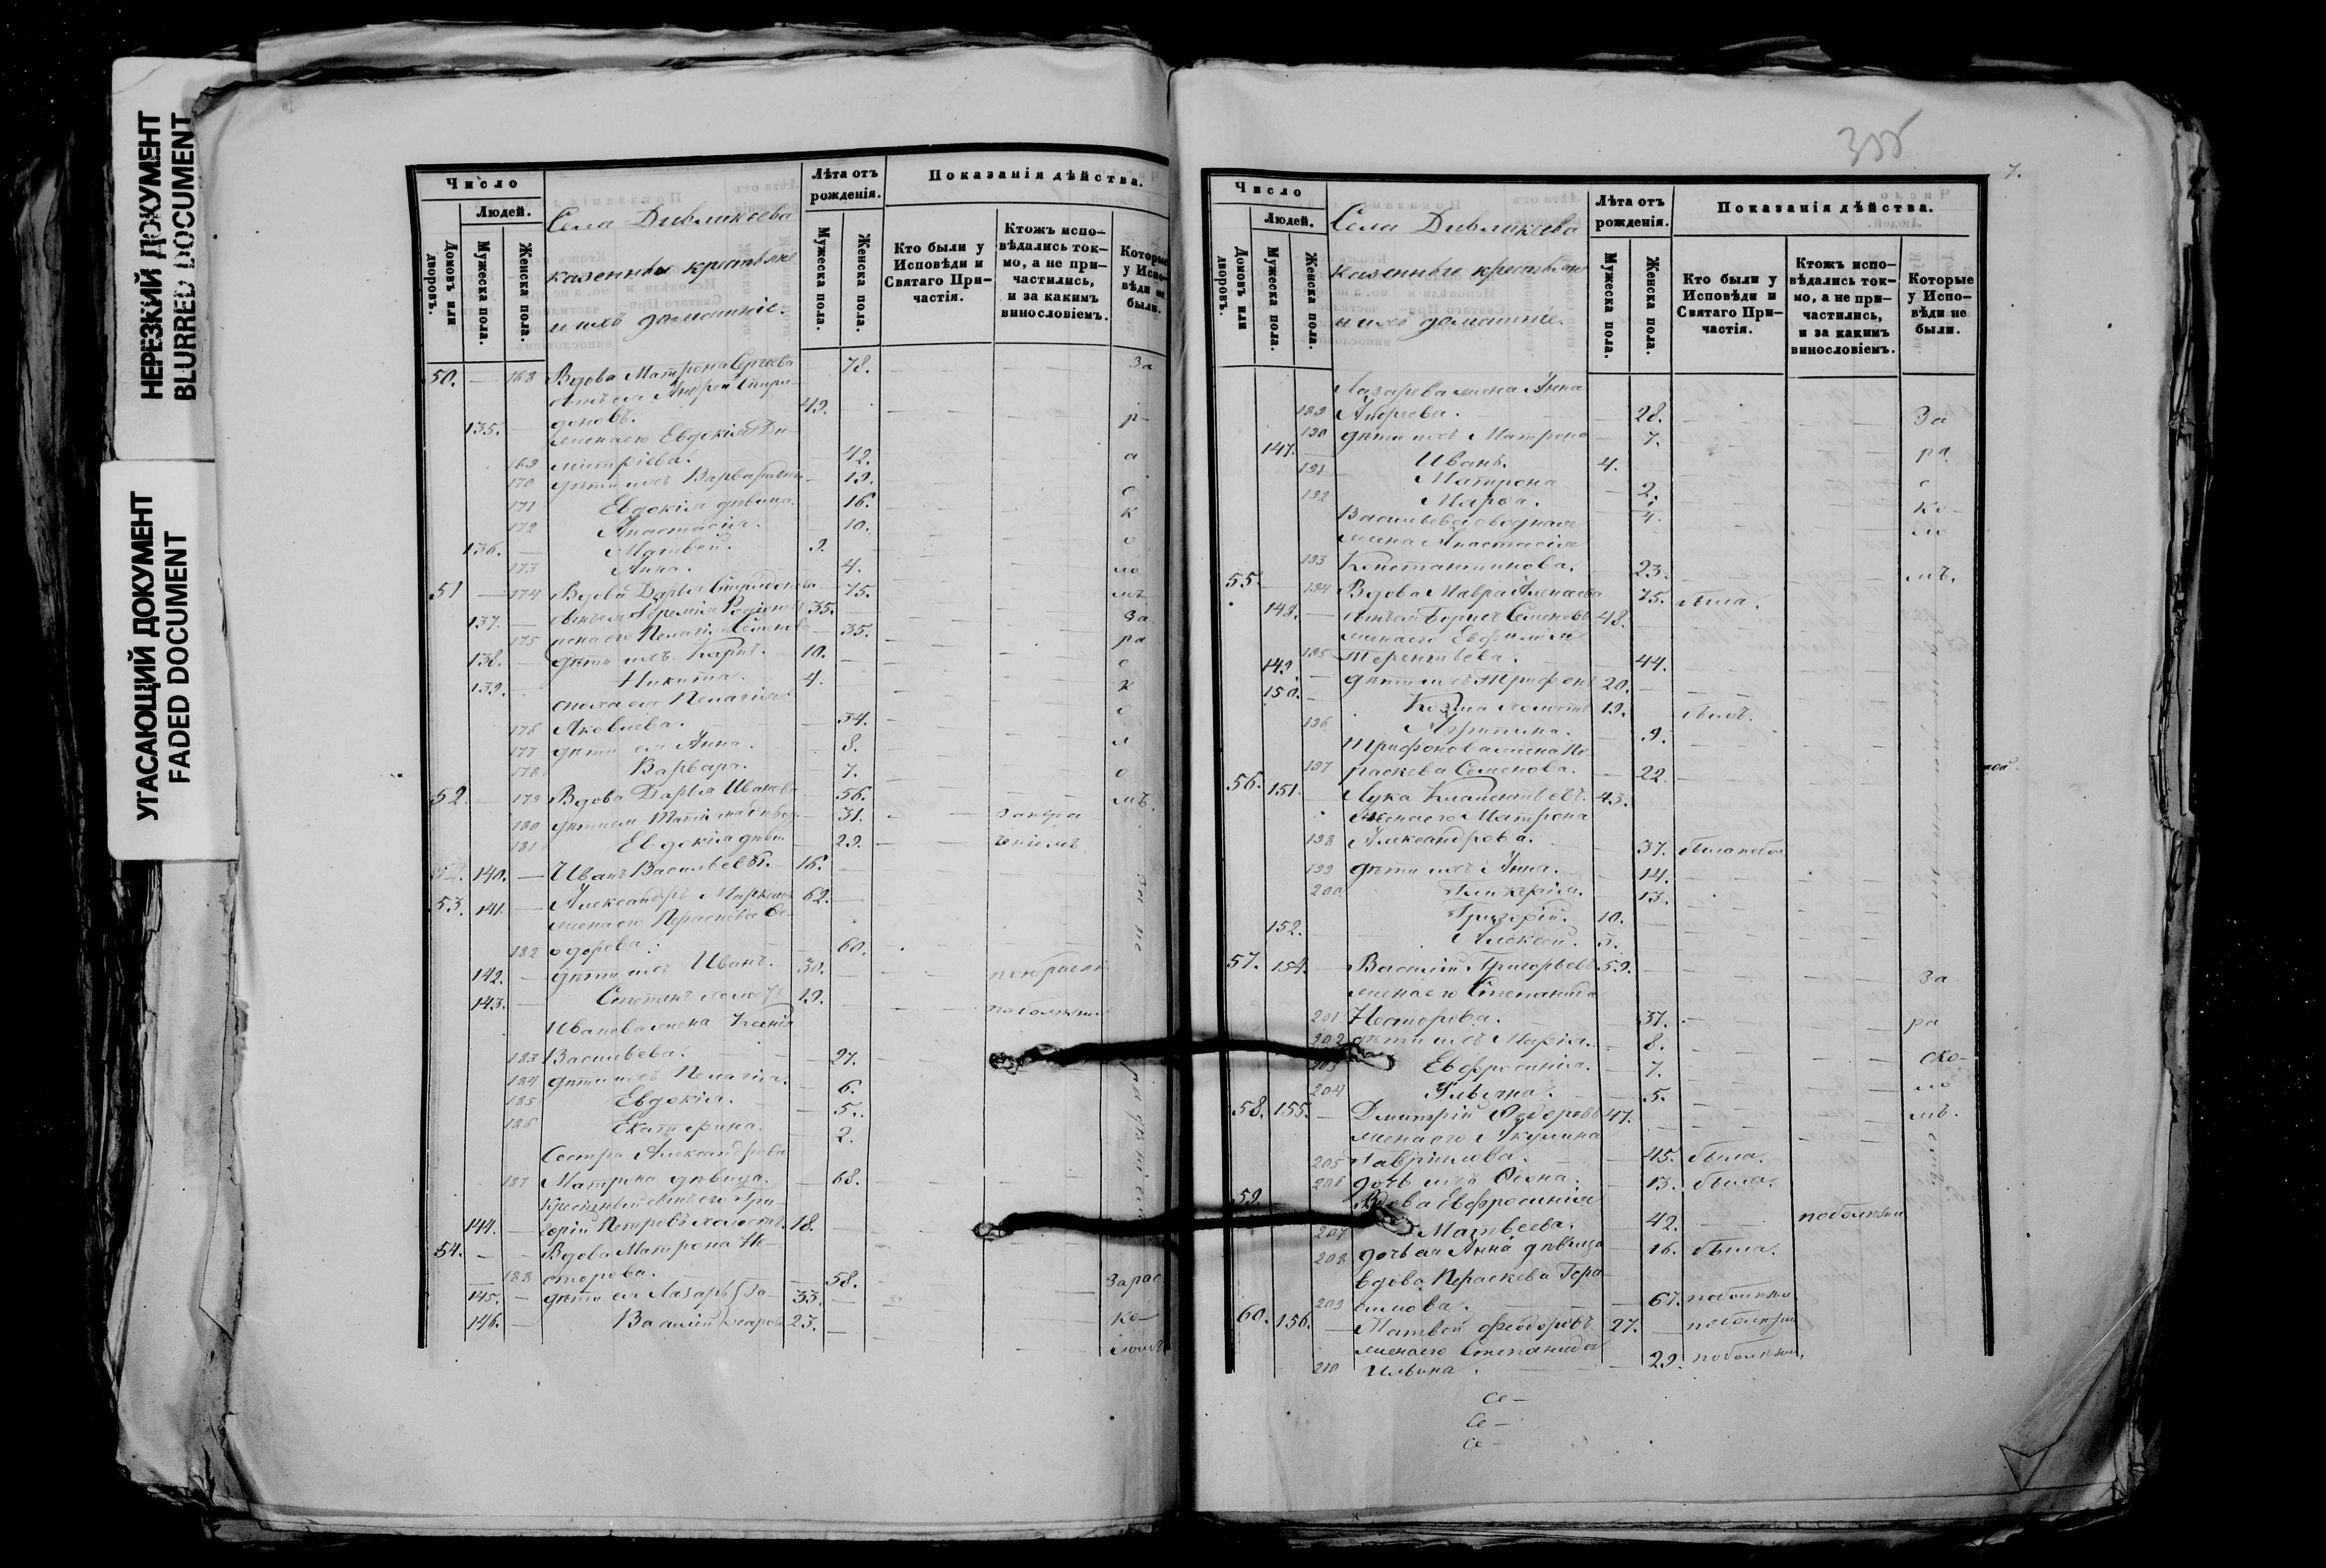 НЕРЕЗКИЙ ДОКУМЕНТ
BLURRED DOCUMENT
УГАСАЮЩИЙ ДОКУМЕНТ
FADED DOCUMENT
Число
Людей.
Домовъ или дворовъ.
Мужеска пола.
Женска пола.
Села Дивликеева
казенные крестьяне
и ихъ домашніе.
Лѣта отъ рожденія.
Мужеска пола.
Женска пола.
Показанія дѣйства.
Кто были у Исповѣди и Святаго Причастія.
Ктожъ исповѣдались токмо, а не причастились, и за какимъ винословіемъ.
Которые у Исповѣди не были.
50. — 168 Вдова Матрона Сергеева 78. За
сынъ ея Андрей Спири-
135. — доновъ. 49. р-
жена его Евдокія Ди-
169 митріева. 42. а
170 дѣти ихъ Варвара 19. с
171 Евдокія дѣвица. 16. к
172 Анастасія. 10. о
136. — Матвей. 9.
173 Анна. 4. ло
51 — 174 Вдова Дарья Спиридонова 75. мъ
137. — сынъ ея Ефремій Родіоновъ 35. За
175 жена его Пелагія Семенова 35. ра
138. — дѣти ихъ Карпъ. 10. с
139. — Никита. 4. к
сноха ея Пелагія
176 Яковлева. 34. о
177 дѣти ея Анна. 8. л
178 Варвара. 7. о
52. — 179 Вдова Дарья Иванова 56. мъ.
180 дѣти ея Татіана дѣвиц. 31.
181 Евдокія дѣвиц. 29.
140. — Иванъ Васильевъ. 16.
53. 141. — Александръ Маркеловъ 62.
жена его Параскева Ѳе-
182 одорова. 60.
142. — дѣти ихъ Иванъ. 30.
143. — Степанъ холостъ 19. по болезни
Иванова жена Ксенія
183 Васильева. 27.
184 дѣти ихъ Пелагія. 6.
185 Евдокія. 5.
186 Екатерина. 2.
Сестра Александрова
187 Матрона дѣвица. 68.
Крестный сынъ его Гри-
144. — горій Петровъ холостъ. 18.
54. — Вдова Матрона Не-
188 сторова. 58. Зарас-
145. — дѣти ея Лазарь 33. ко-
146. — Василій 23. ломъ
355
7.
Число
Людей.
Домовъ или дворовъ.
Мужеска пола.
Женска пола.
Села Дивликеева
казенные крестьяне
и ихъ домашніе.
Лѣта отъ рожденія.
Мужеска пола.
Женска пола.
Показанія дѣйства.
Кто были у Исповѣди и Святаго Причастія.
Ктожъ исповѣдались токмо, а не причастились, и за какимъ винословіемъ.
Которые у Исповѣди не были.
Лазарева жена Анна
189 Андреева. 28. За
190 дѣти ихъ Матрона 7.
147. Иванъ. 4. ра
191 Матрона 2. с
192 Марѳа. ко-
Васильева сводная ло
жена Анастасія
193 Константинова. 23. мъ.
55. 194 Вдова Мавра Алексеева 75. была.
148. сынъ ея Борисъ Семеновъ 48.
жена его Евфимія
195 Терентьева. 44.
149. — дѣти ихъ Трифонъ 20.
150. Козма холостъ 19. былъ.
196 Агрипина. 9.
Трифонова жена Па-
197 раскева Семенова. 22.
56. 151. Лука Климентьевъ. 43.
жена его Матрона
198 Александрова. 37.
199 дѣти ихъ Анна. 14.
200 Гликерія. 13.
Григорій. 10.
152. Алексей. 5.
57. 154. — Василій Григорьевъ 59. За
жена его Степанида
201 Несторова. 37. ра
202 дѣти ихъ Марія. 8.
203 Евфросинія. 7. ско-
204 Ульяна. 5. ло
58. 155. — Дмитрій Ѳедоровъ 47. мъ.
жена его Акулина
205 Гавриилова. 45. была.
206 дочь ихъ Ѳеона. 13. была.
59. Вдова Евфросинія
207 Матвеева. 42. по болезни
208 дочь ея Анна дѣвица 16. была.
Вдова Параскева Гера-
209 симова. 67. по болезни
60. 156. — Матвей Ѳеодоровъ 27. по болезни
жена его Степанида
210 Ильина. 29. по болезни.
Се —
Се —
Се —